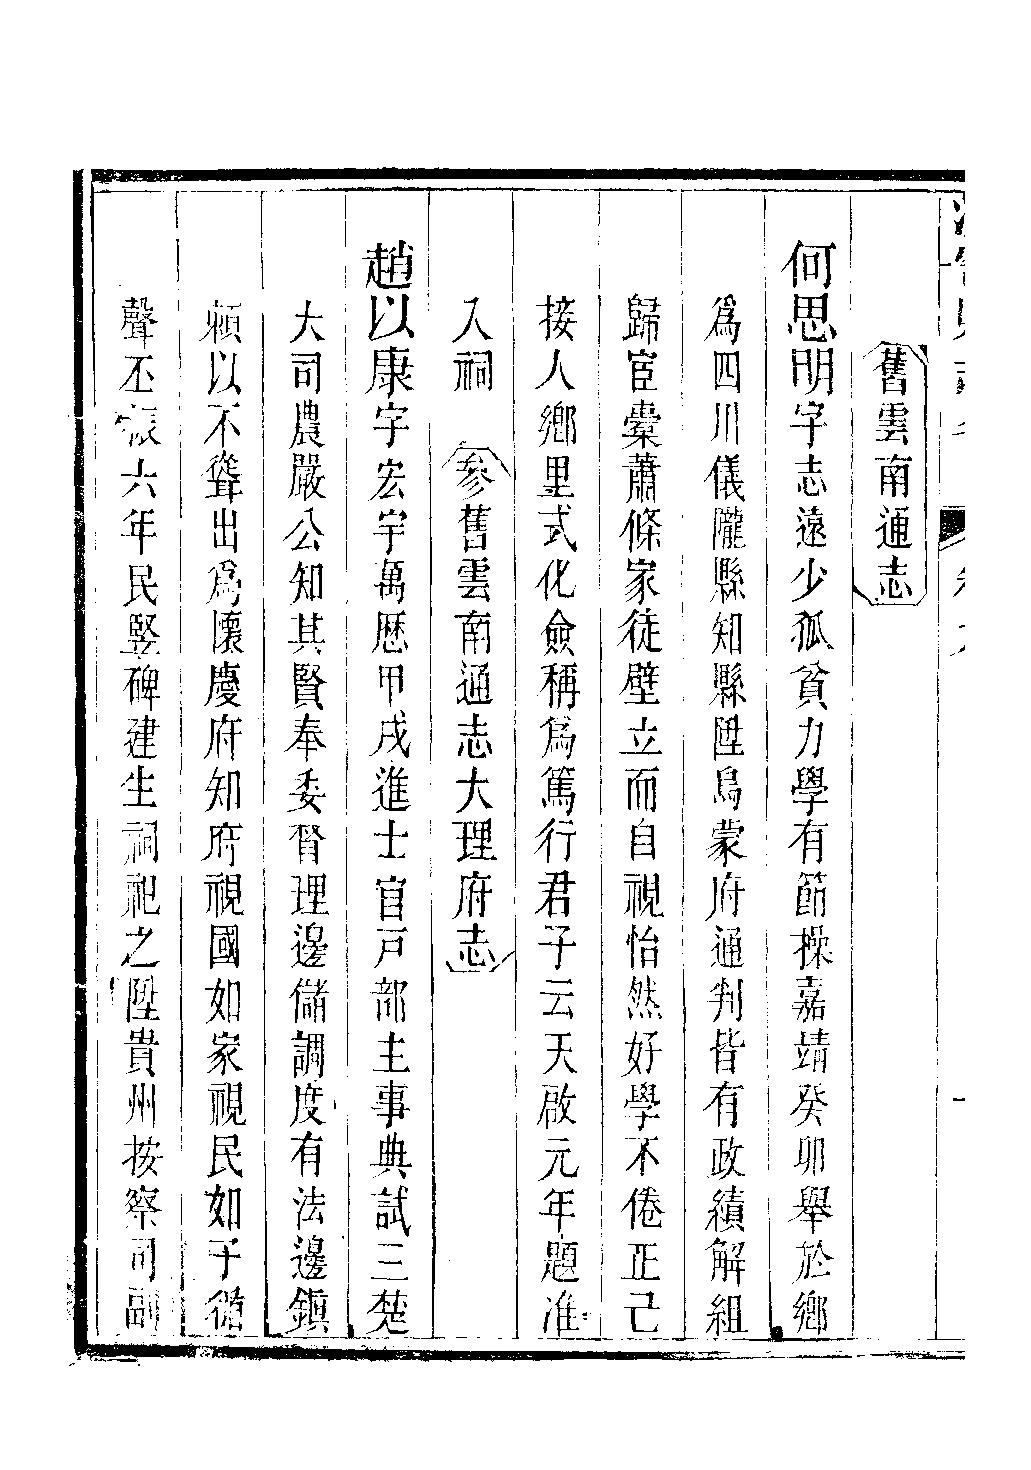 舊雲南通志
何思明字志遠少孤貧力學有節操嘉靖癸卯舉於鄉
爲四川儀隴縣知縣陞烏蒙府通判皆有政績解組
歸宦橐蕭條家徒壁立而自視怡然好學不倦正己
接人鄉里式化僉稱爲篤行君子云天啟元年題准
入祠 參舊雲南通志大理府志
趙以康字宏宇萬歷甲戌進士官戶部主事典試三楚
大司農嚴公知其賢奉委督理邊儲調度有法邊鎮
賴以不聳出爲懷慶府知府視國如家視民如子循
聲丕振六年民竪碑建生祠祀之陞貴州按察司副